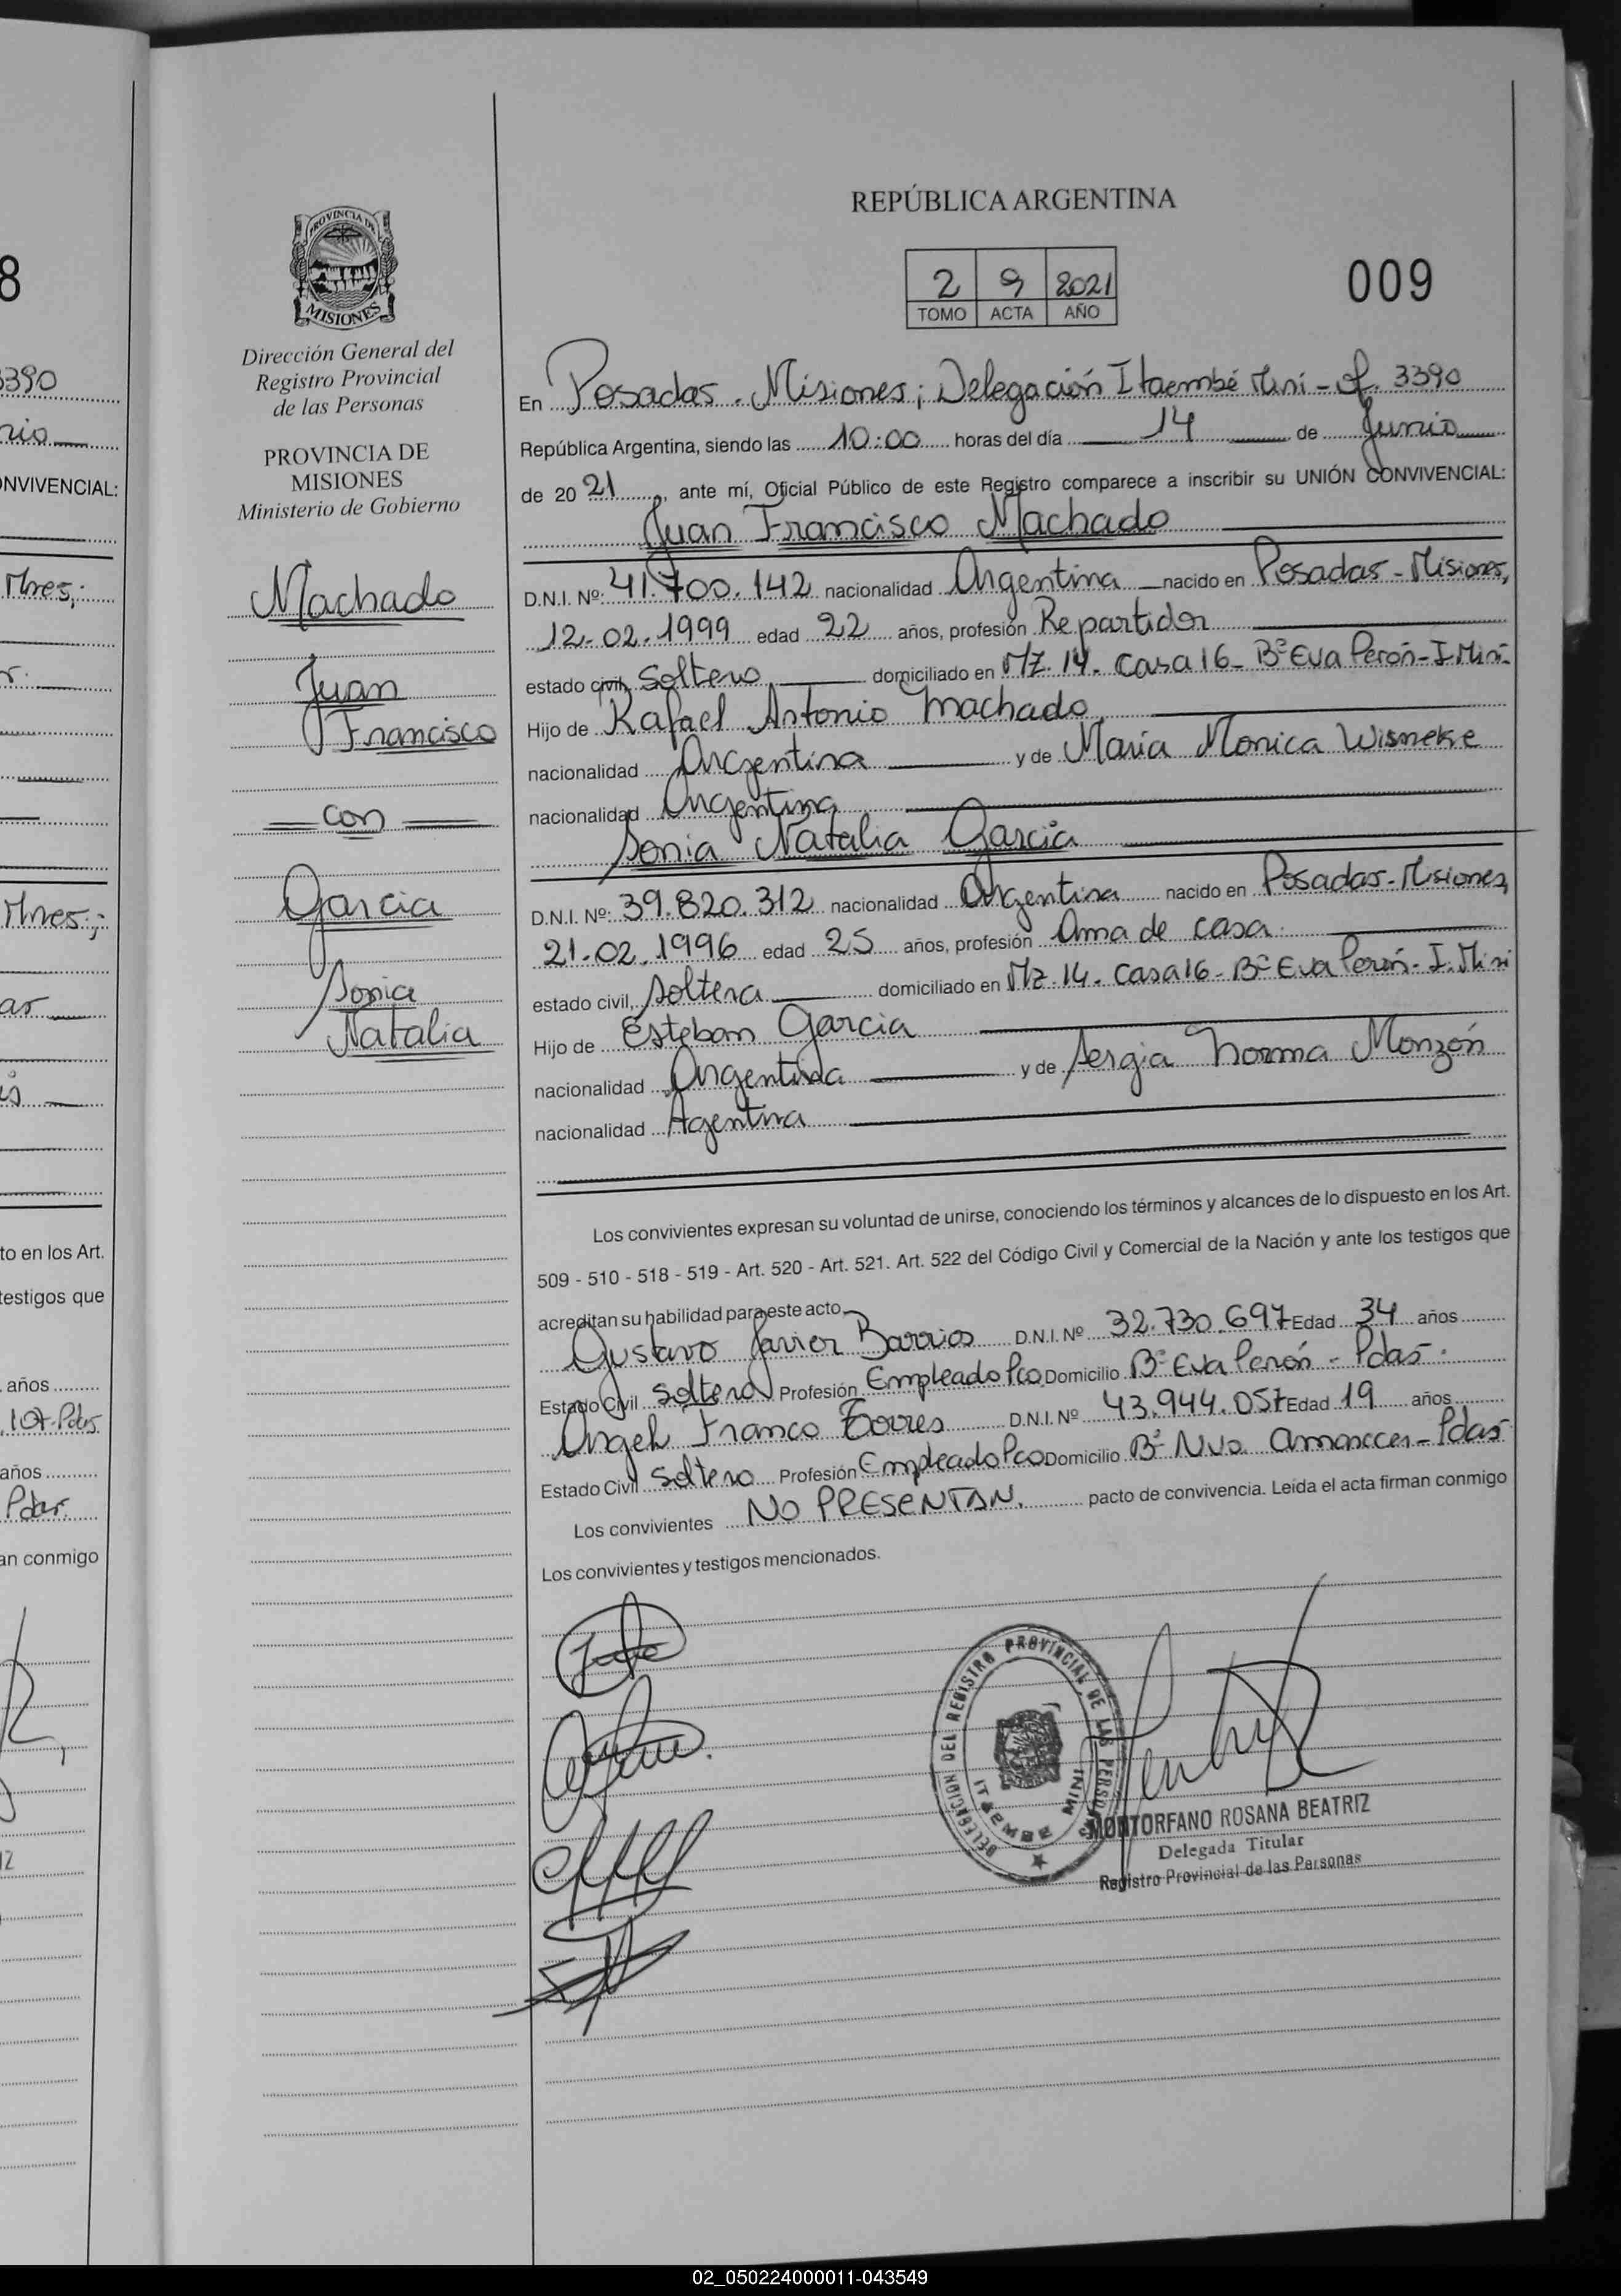 8
3390
rio
ONVIVENCIAL:
Mnes;
r.
Mnes;
as
is
to en los Art.
testigos que
años
107-Pdas
años
Pdas.
an conmigo
PROVINCIA DE
MISIONES
Dirección General del
Registro Provincial
de las Personas
PROVINCIA DE
MISIONES
Ministerio de Gobierno
Machado
Juan
Francisco
con
Garcia
Sonia
Natalia
REPÚBLICA ARGENTINA
2 9 2021
TOMO ACTA AÑO
009
En Posadas. Misiones; Delegación Itaembé Miní - of. 3390
República Argentina, siendo las 10:00 horas del día 14 de Junio
de 20 21, ante mí, Oficial Público de este Registro comparece a inscribir su UNIÓN CONVIVENCIAL:
Juan Francisco Machado
D.N.I. Nº: 41.700.142 nacionalidad Argentina nacido en Posadas - Misiones,
12-02.1999 edad 22 años, profesión Repartidor
estado civil, Soltero domiciliado en Mz. 14. Casa 16 - Bº Eva Perón - I. Miní
Hijo de Rafael Antonio Machado
nacionalidad Argentina y de María Monica Wisneke
nacionalidad Argentina
Sonia Natalia Garcia
D.N.I. Nº: 39.820.312 nacionalidad Argentina nacido en Posadas - Misiones,
21-02.1996 edad 25 años, profesión Ama de casa.
estado civil, Soltera domiciliado en Mz. 14. Casa 16 - Bº Eva Perón - I. Mini
Hijo de Esteban Garcia
nacionalidad Argentina y de Sergia Norma Monzón
nacionalidad Agentina
Los convivientes expresan su voluntad de unirse, conociendo los términos y alcances de lo dispuesto en los Art.
509 - 510 - 518 - 519 - Art. 520 - Art. 521. Art. 522 del Código Civil y Comercial de la Nación y ante los testigos que
acreditan su habilidad para este acto
Gustavo Javier Barrios D.N.I. Nº 32.730.697 Edad 34 años
Estado Civil Soltero Profesión Empleado Pco Domicilio Bº Eva Perón - Pdas.
Angel Franco Torres D.N.I. Nº 43.944.057 Edad 19 años
Estado Civil Soltero Profesión Empleado Pco Domicilio Bº Nvo. Amanecer - Pdas
Los convivientes NO PRESENTAN. pacto de convivencia. Leída el acta firman conmigo
Los convivientes y testigos mencionados.
DELEGACION DEL REGISTRO PROVINCIAL DE LAS PERSONAS
ITAEMBE MINI
MONTORFANO ROSANA BEATRIZ
Delegada Titular
Registro Provincial de las Personas
02_050224000011-043549